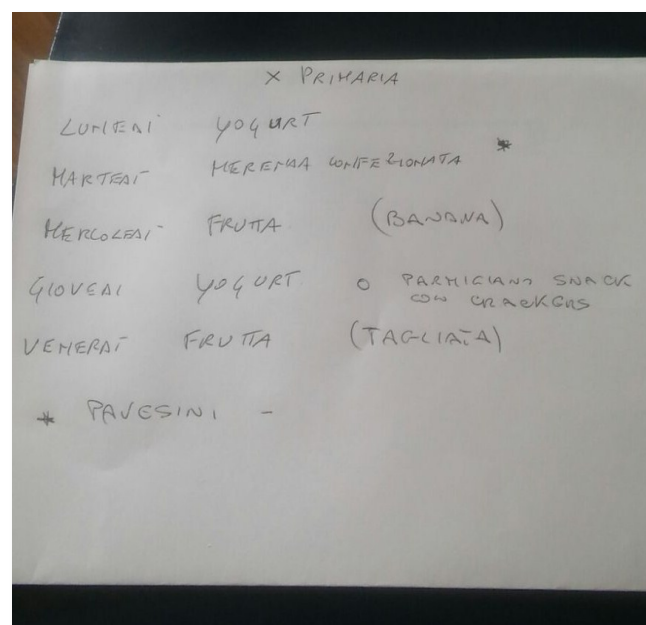 X PRIMARIA
LUNEDÌ YOGURT
MARTEDÌ MERENDA CONFEZIONATA *
MERCOLEDÌ FRUTTA (BANANA)
GIOVEDÌ YOGURT O PARMIGIANO SNACK
CON CRACKERS
VENERDÌ FRUTTA (TAGLIATA)
* PAVESINI -